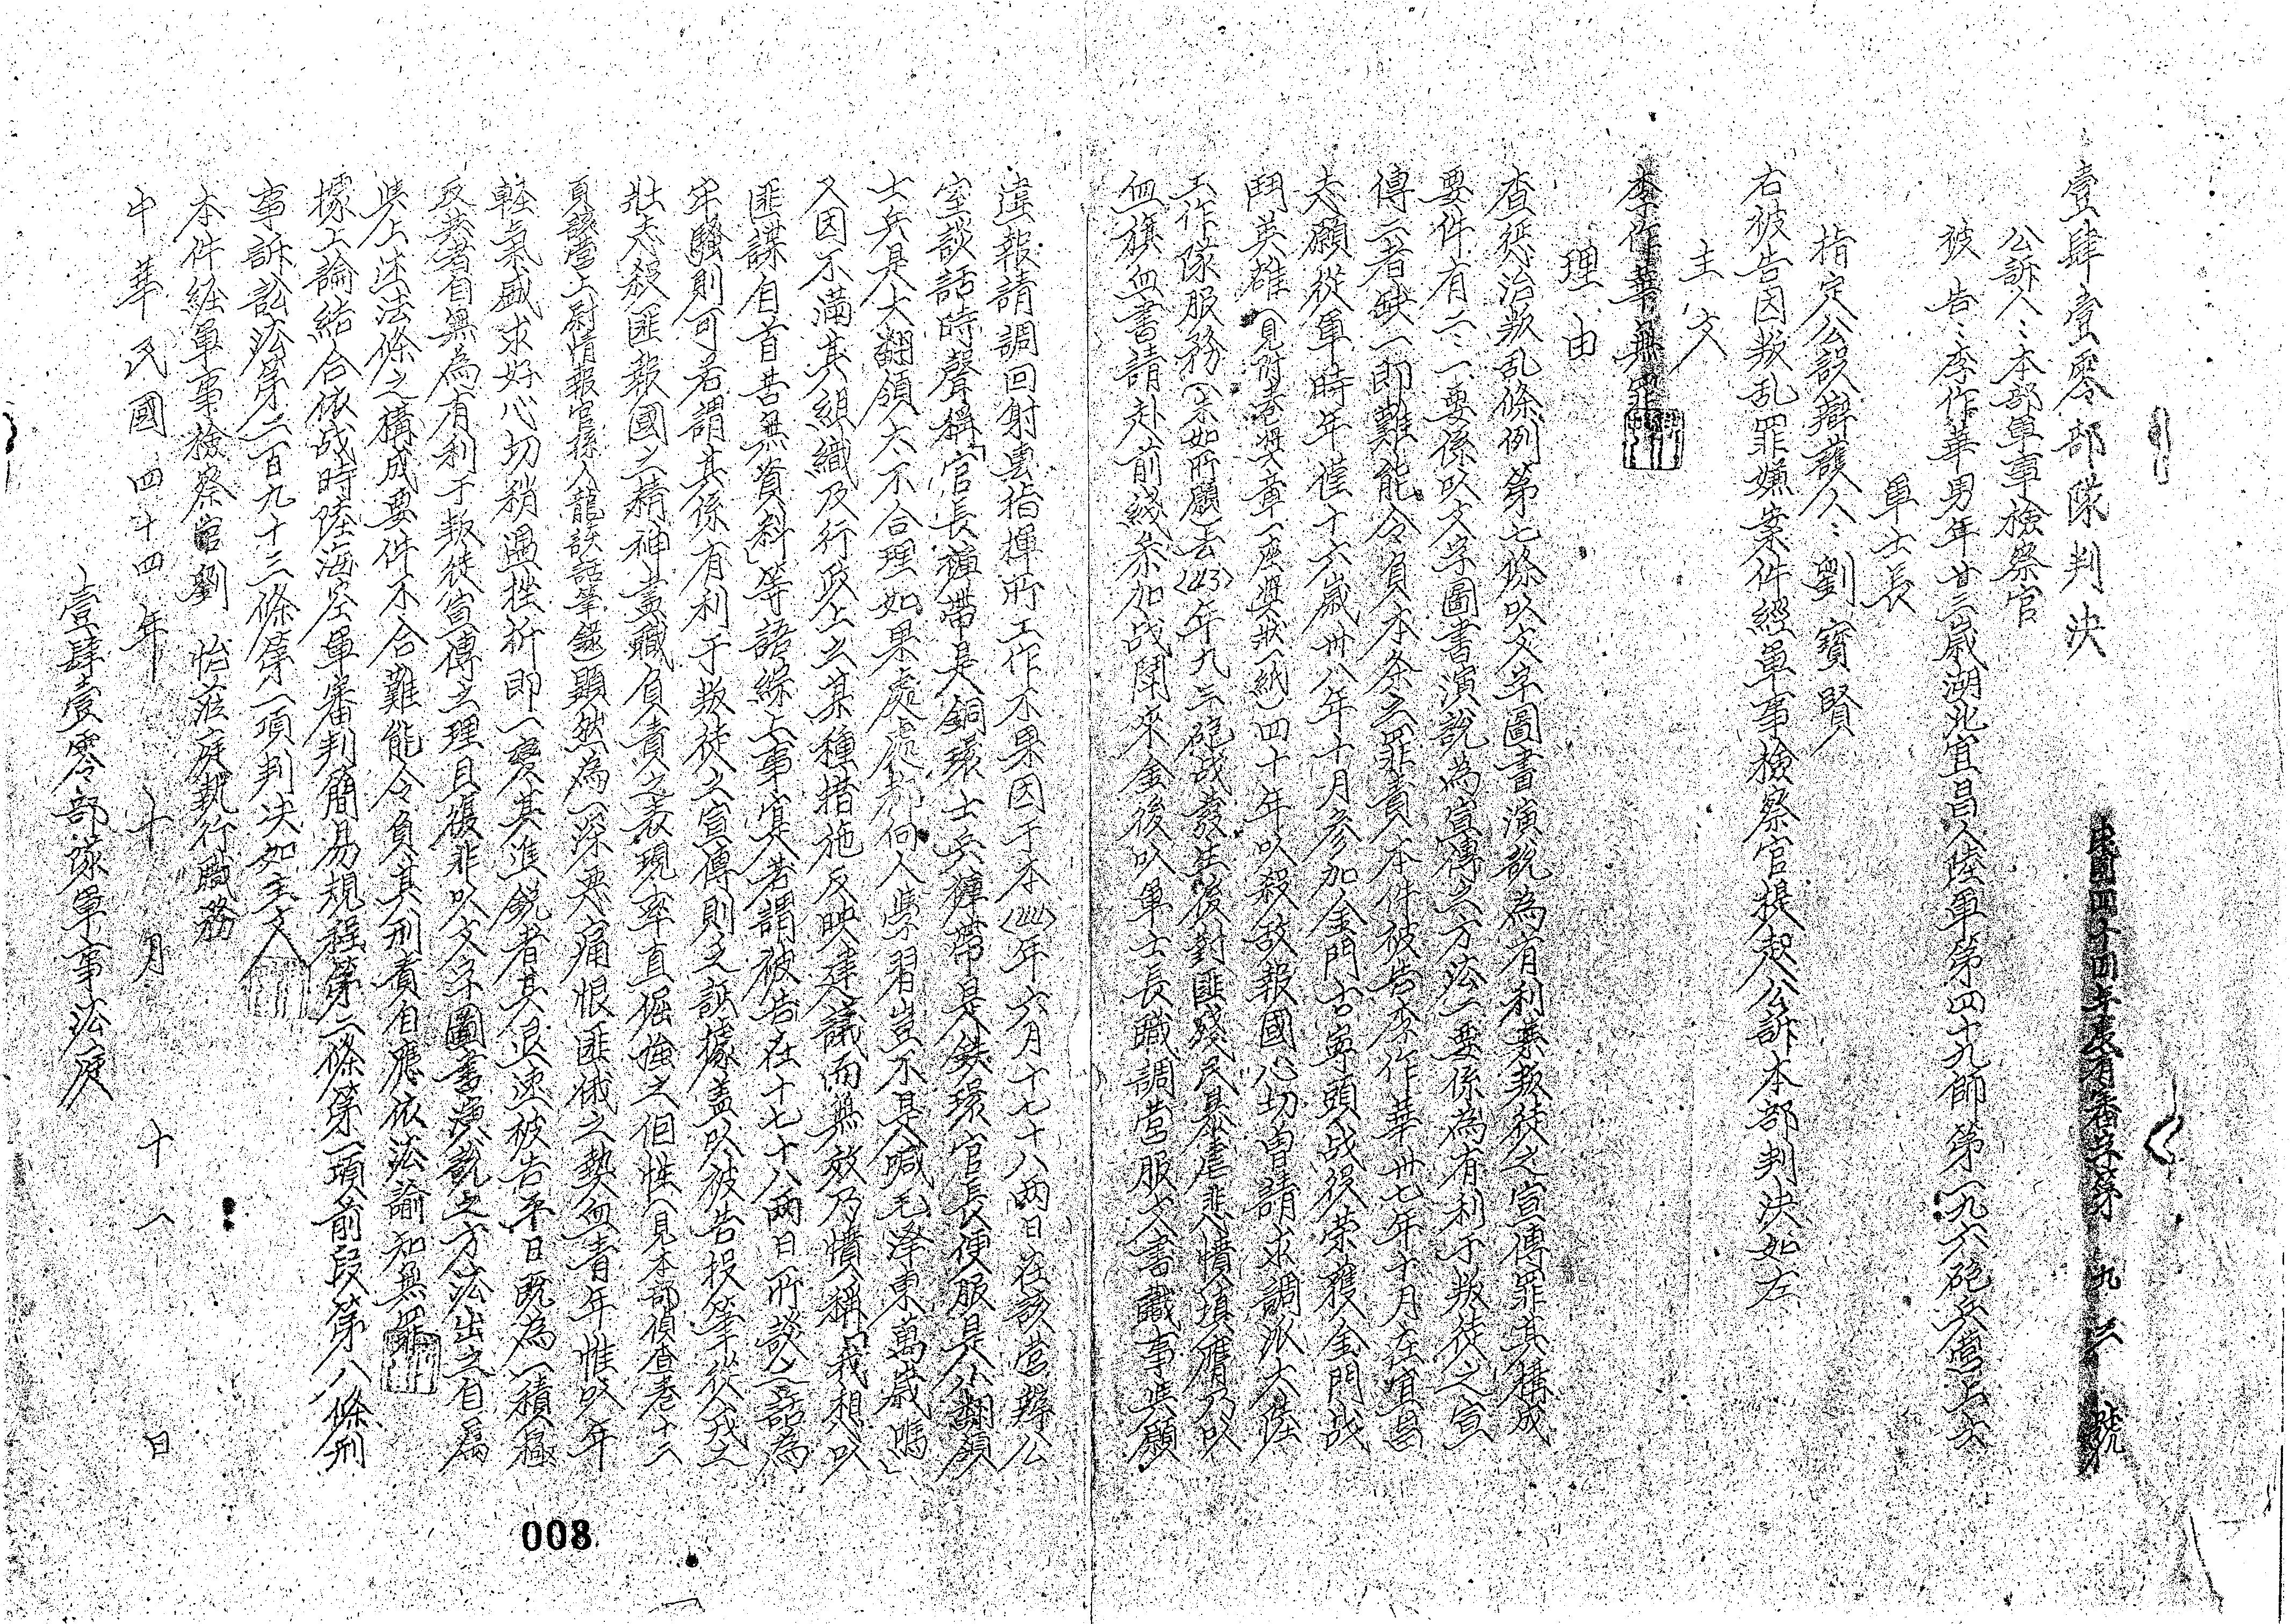 壹肆壹零部隊判決
民國四十四年度有審字第九三號
公訴人:本部軍事檢察官
被告:李作華男年廿三歲湖北宜昌人陸軍第四十九師第一九六砲兵營上士
軍士長
指定公設辯護人:劉寶賢
右被告因叛乱罪嫌案件經軍事檢察官提起公訴本部判決如左
主文
李作華無罪
理由
查惩治叛乱條例第七條以文字圖書演說為有利於叛徒之宣傳罪其構成
要件有二:一要係以文字圖書演說為宣傳之方法二要係為有利于叛徒之宣
傳二者缺一即難能令負本条之罪責本件被告李作華卅七年十月在宜昌
志願從軍時年僅十六歲卅八年十月參加金門古寧頭战役荣獲金門战
鬥英雄(見附卷獎章一座獎狀一紙)四十年以殺敌報國心切曾請求調派大陸
工作隊服務(未如所願)去(43)年九三砲战發生後對匪殘民暴虐悲憤填膺乃以
血旗血書請赴前綫参加战鬥來金後以軍士長職調營服文書職事與願
違報請調回射擊指揮所工作不果因于本(44)年六月十七十八两日在該营辦公
室談話時聲稱「官長褲带是銅環士兵褲带是鉄環官長便服是小翻領
士兵是大翻領太不合理如果處處都向人學習豈不是喊毛泽東萬歲嗎」
又因不滿其組織及行政上之某種措施反映建議而無效乃憤稱「我想以
匪諜自首苦無資料」等語綜上事實若謂被告在十七十八两日所談之話為
牢騷則可若謂其係有利于叛徒之宣傳則乏証據盖以被告投筆從戎之
壯志殺匪報國之精神盡職負責之表現率直倔強之個性(見本部偵查卷十二
頁該营上尉情報官孫人龍談話筆錄)顯然為一深恶痛恨匪俄之熱血青年惟以年
軽氣盛求好心切稍遇挫折即一變其進銳者其退速被告平日既為一積極
反共者自無為有利于叛徒宣傳之理且复非以文字圖書演說之方法出之自属
與上述法條之構成要件不合難能令負其刑責自應依法諭知無罪
據上論結合依战時陸海空軍審判簡易規程第二條第一項前段第八條刑
事訴訟法第二百九十三條第一項判决如主文
本件經軍事檢察官劉怡蒞庭執行職務
中華民國四十四年十月十一日
壹肆壹零部隊軍事法庭
008